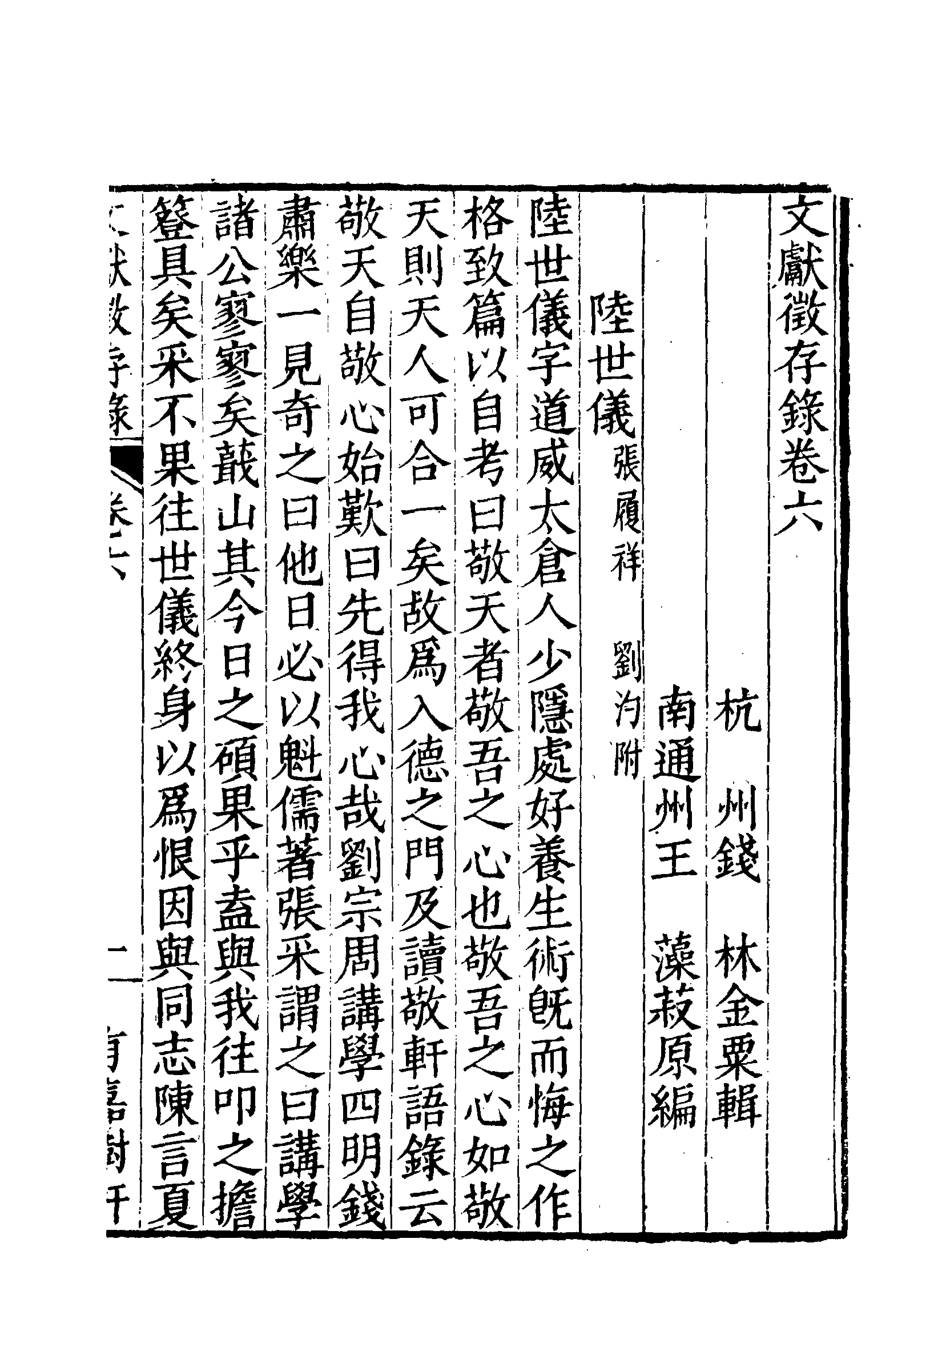 文獻徵存錄卷六
杭州錢林金粟輯
南通州王藻菽原編
陸世儀 張履祥 劉汋附
陸世儀字道威太倉人少隱處好養生術旣而悔之作
格致篇以自考曰敬天者敬吾之心也敬吾之心如敬
天則天人可合一矣故爲入德之門及讀敬軒語錄云
敬天自敬心始歎曰先得我心哉劉宗周講學四明錢
肅樂一見奇之曰他日必以魁儒著張采謂之曰講學
諸公寥寥矣蕺山其今日之碩果乎盍與我往叩之擔
簦具矣采不果往世儀終身以爲恨因與同志陳言夏
文獻徵存錄 卷六 一 有嘉樹軒